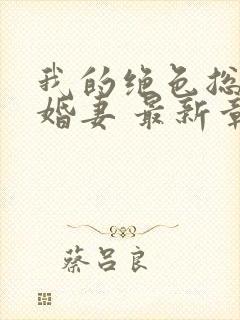 我的绝色总
婚妻 最新章
蔡吕良